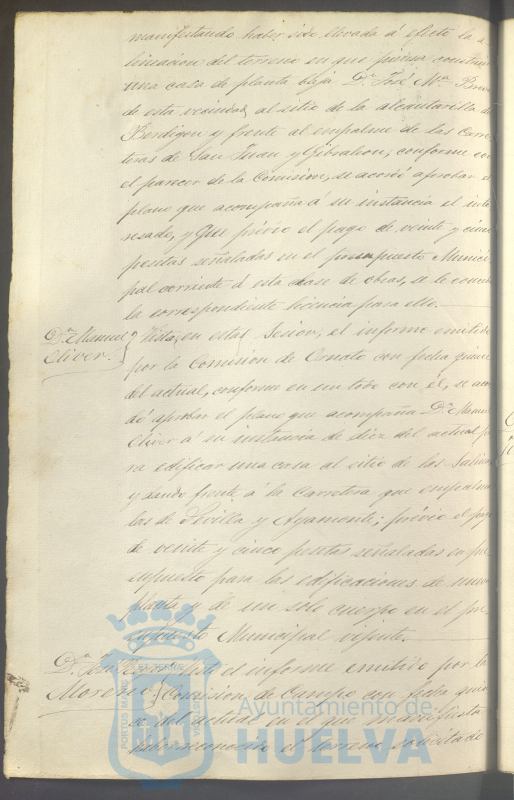 manifestando haber sido llevada á efecto la a-
lineacion del terreno en que piensa construir
una casa de planta baja Dⁿ José Mª
de esta vecindad, al sitio de la alcantarilla de
Berdigon y frente al empalme de las Carre-
teras de San Juan y Gibraleon; conforme con
el parecer de la Comision, se acordó aprobar el
plano que acompaña á su instancia el inte-
resado, y que prévio el pago de veinte y cinco
pesetas señaladas en el presupuesto Munici-
pal corriente á esta clase de obras, se le conceda
la correspondiente licencia para ello.
Dⁿ Manuel
Oliver.
Vista, en esta Sesion, el informe emitido
por la Comision de Ornato con fecha quince
del actual, conforme en un todo con él, se acor-
dó aprobar el plano que acompaña Dⁿ Manuel
Oliver á su instancia de diez del actual pa-
ra edificar una casa al sitio de las Salinas
y dando frente á la Carretera que empalma
las de Sevilla y Ayamonte; prévio el pago
de veinte y cinco pesetas señaladas
supuesto para las edificaciones de nueva
planta y de un solo cuerpo en el pre-
supuesto Municipal vijente.
Dⁿ
Moreno
Visto el informe emitido por la
Comision de Campo con fecha quin-
ce del actual en el que manifiesta
haber reconocido el terreno solicitado
PORTUS MARIS
Ayuntamiento de
HUELVA